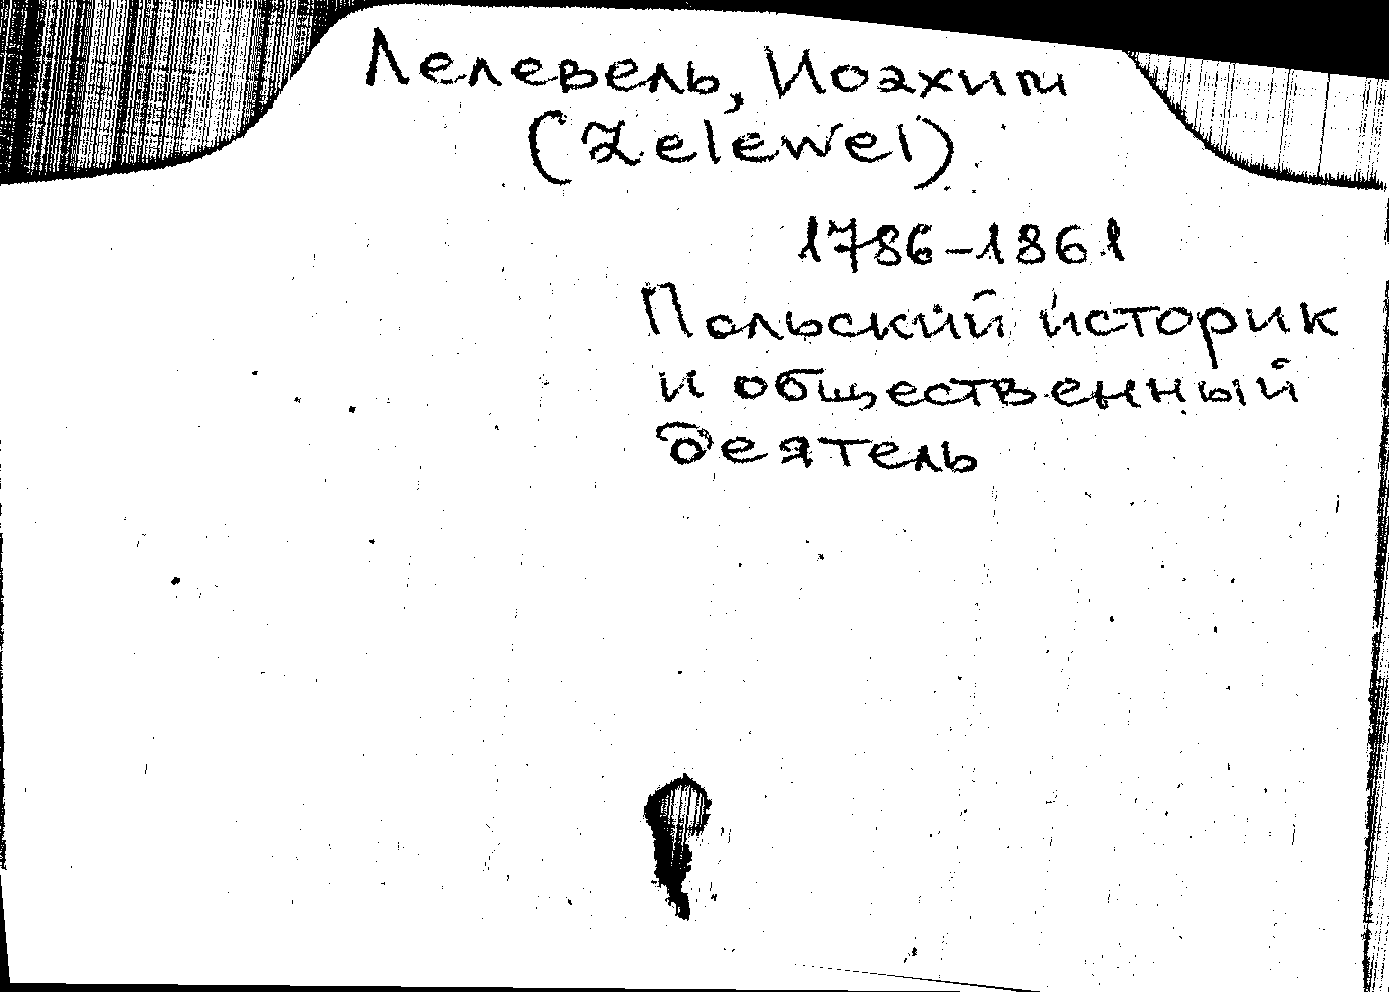 Лелевель, Иоахим
(Lelewel)
1786-1861
Польский историк
и общественный
деятель